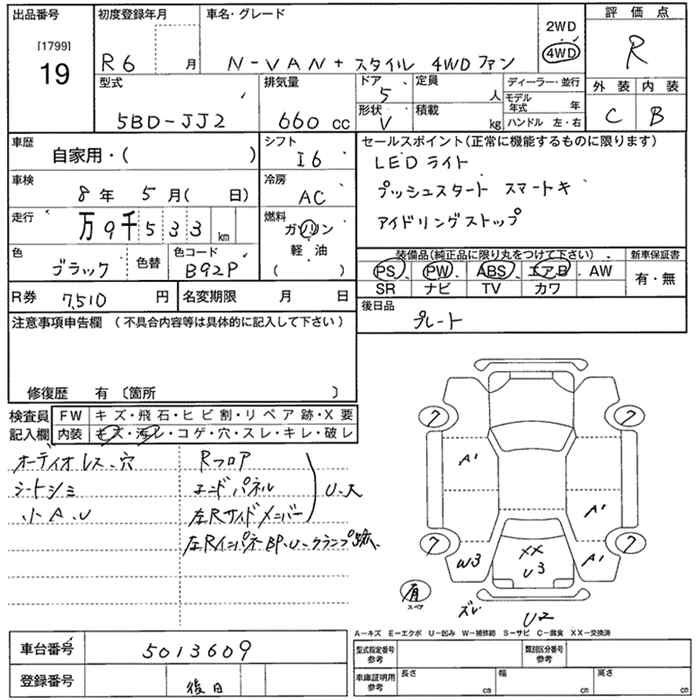 出品番号 初度登録年月 車名・グレード 2WD 評価点
[1799] 19 R6 月 N-VAN+ スタイル 4WD ファン 4WD R
型式 排気量 ドア 5 定員 人 ディーラー・並行 外装 内装
5BD-JJ2 660 cc 形状 V 積載 kg モデル年式 年 C B
ハンドル 左・右
車歴 自家用・( ) シフト I6 セールスポイント(正常に機能するものに限ります)
LEDライト
車検 8年 5月( 日) 冷房 AC プッシュスタート スマートキ
走行 万9千533 km 燃料 ガソリン アイドリングストップ
軽油
( )
色 ブラック 色替 色コード B92P
装備品(純正品に限り丸をつけて下さい) 新車保証書
PS PW ABS エアB AW 有・無
SR ナビ TV カワ
R券 7,510 円 名変期限 月 日 後日品
プレート
注意事項申告欄 (不具合内容等は具体的に記入して下さい)
修復歴 有 〔箇所 〕
検査員 FW キズ・飛石・ヒビ割・リペア跡・X要
記入欄 内装 キズ・汚レ・コゲ・穴・スレ・キレ・破レ
オーディオレス、穴 Rフロア
シートシミ エンドパネル U、大
小A、U 左Rサイドメンバー
左RインパネBP、U、クランプ跡、
7 7
A1
A1
7 7
W3 XX U3 A1
有 スペア ズレ U2
A-キズ E-エクボ U-凹み W-補修跡 S-サビ C-腐食 XX-交換済
車台番号 5013609 型式指定番号 参考 類別区分番号 参考
登録番号 後日 車庫証明用 参考 長さ cm 幅 cm 高さ cm